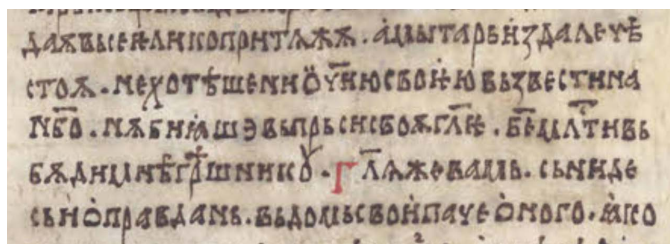 даѫ въсе ѥликопритѧжѫ · а мытарь издалече
стоѧ · не хотѣше ни ѻч҃ию своѥю възвести на
нб҃о · нѫ биꙗше въ прьси своѧ гл҃ѧ · бж҃е млт҃ивь
бѫди мнѣ грѣшникꙋ · гл҃ѧ же вамь · сьниде
сь ѡправдань · вь домь свои паче ѡного · ꙗко